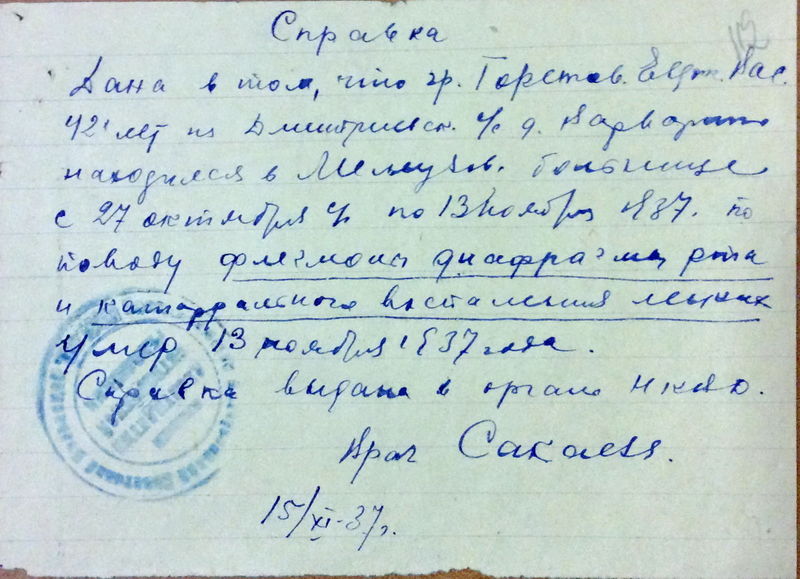 Справка
Дана в том, что гр. Евдок. Вас.
42 лет из Дмитриевск. с/с д.
находился в больнице
с 27 октября по 13 ноября 1937. по
поводу флегмоны диафрагмы рта
и катаррального воспаления легких
умер 13 ноября 1937 года.
Справка выдана в органы НКВД.
Врач
15/XI-37г.